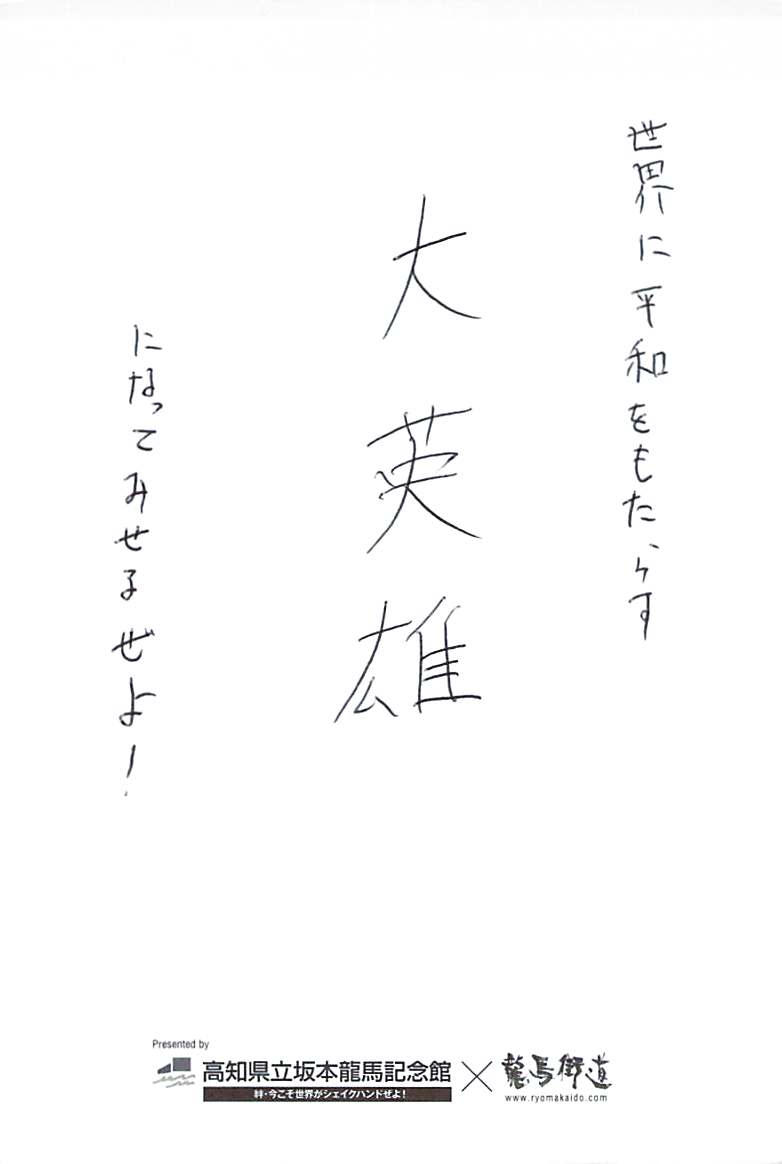 世界に平和をもたらす
大英雄
になってみせるぜよ!
Presented by
高知県立坂本龍馬記念館 × 龍馬街道
絆・今こそ世界がシェイクハンドぜよ!
www.ryomakaido.com